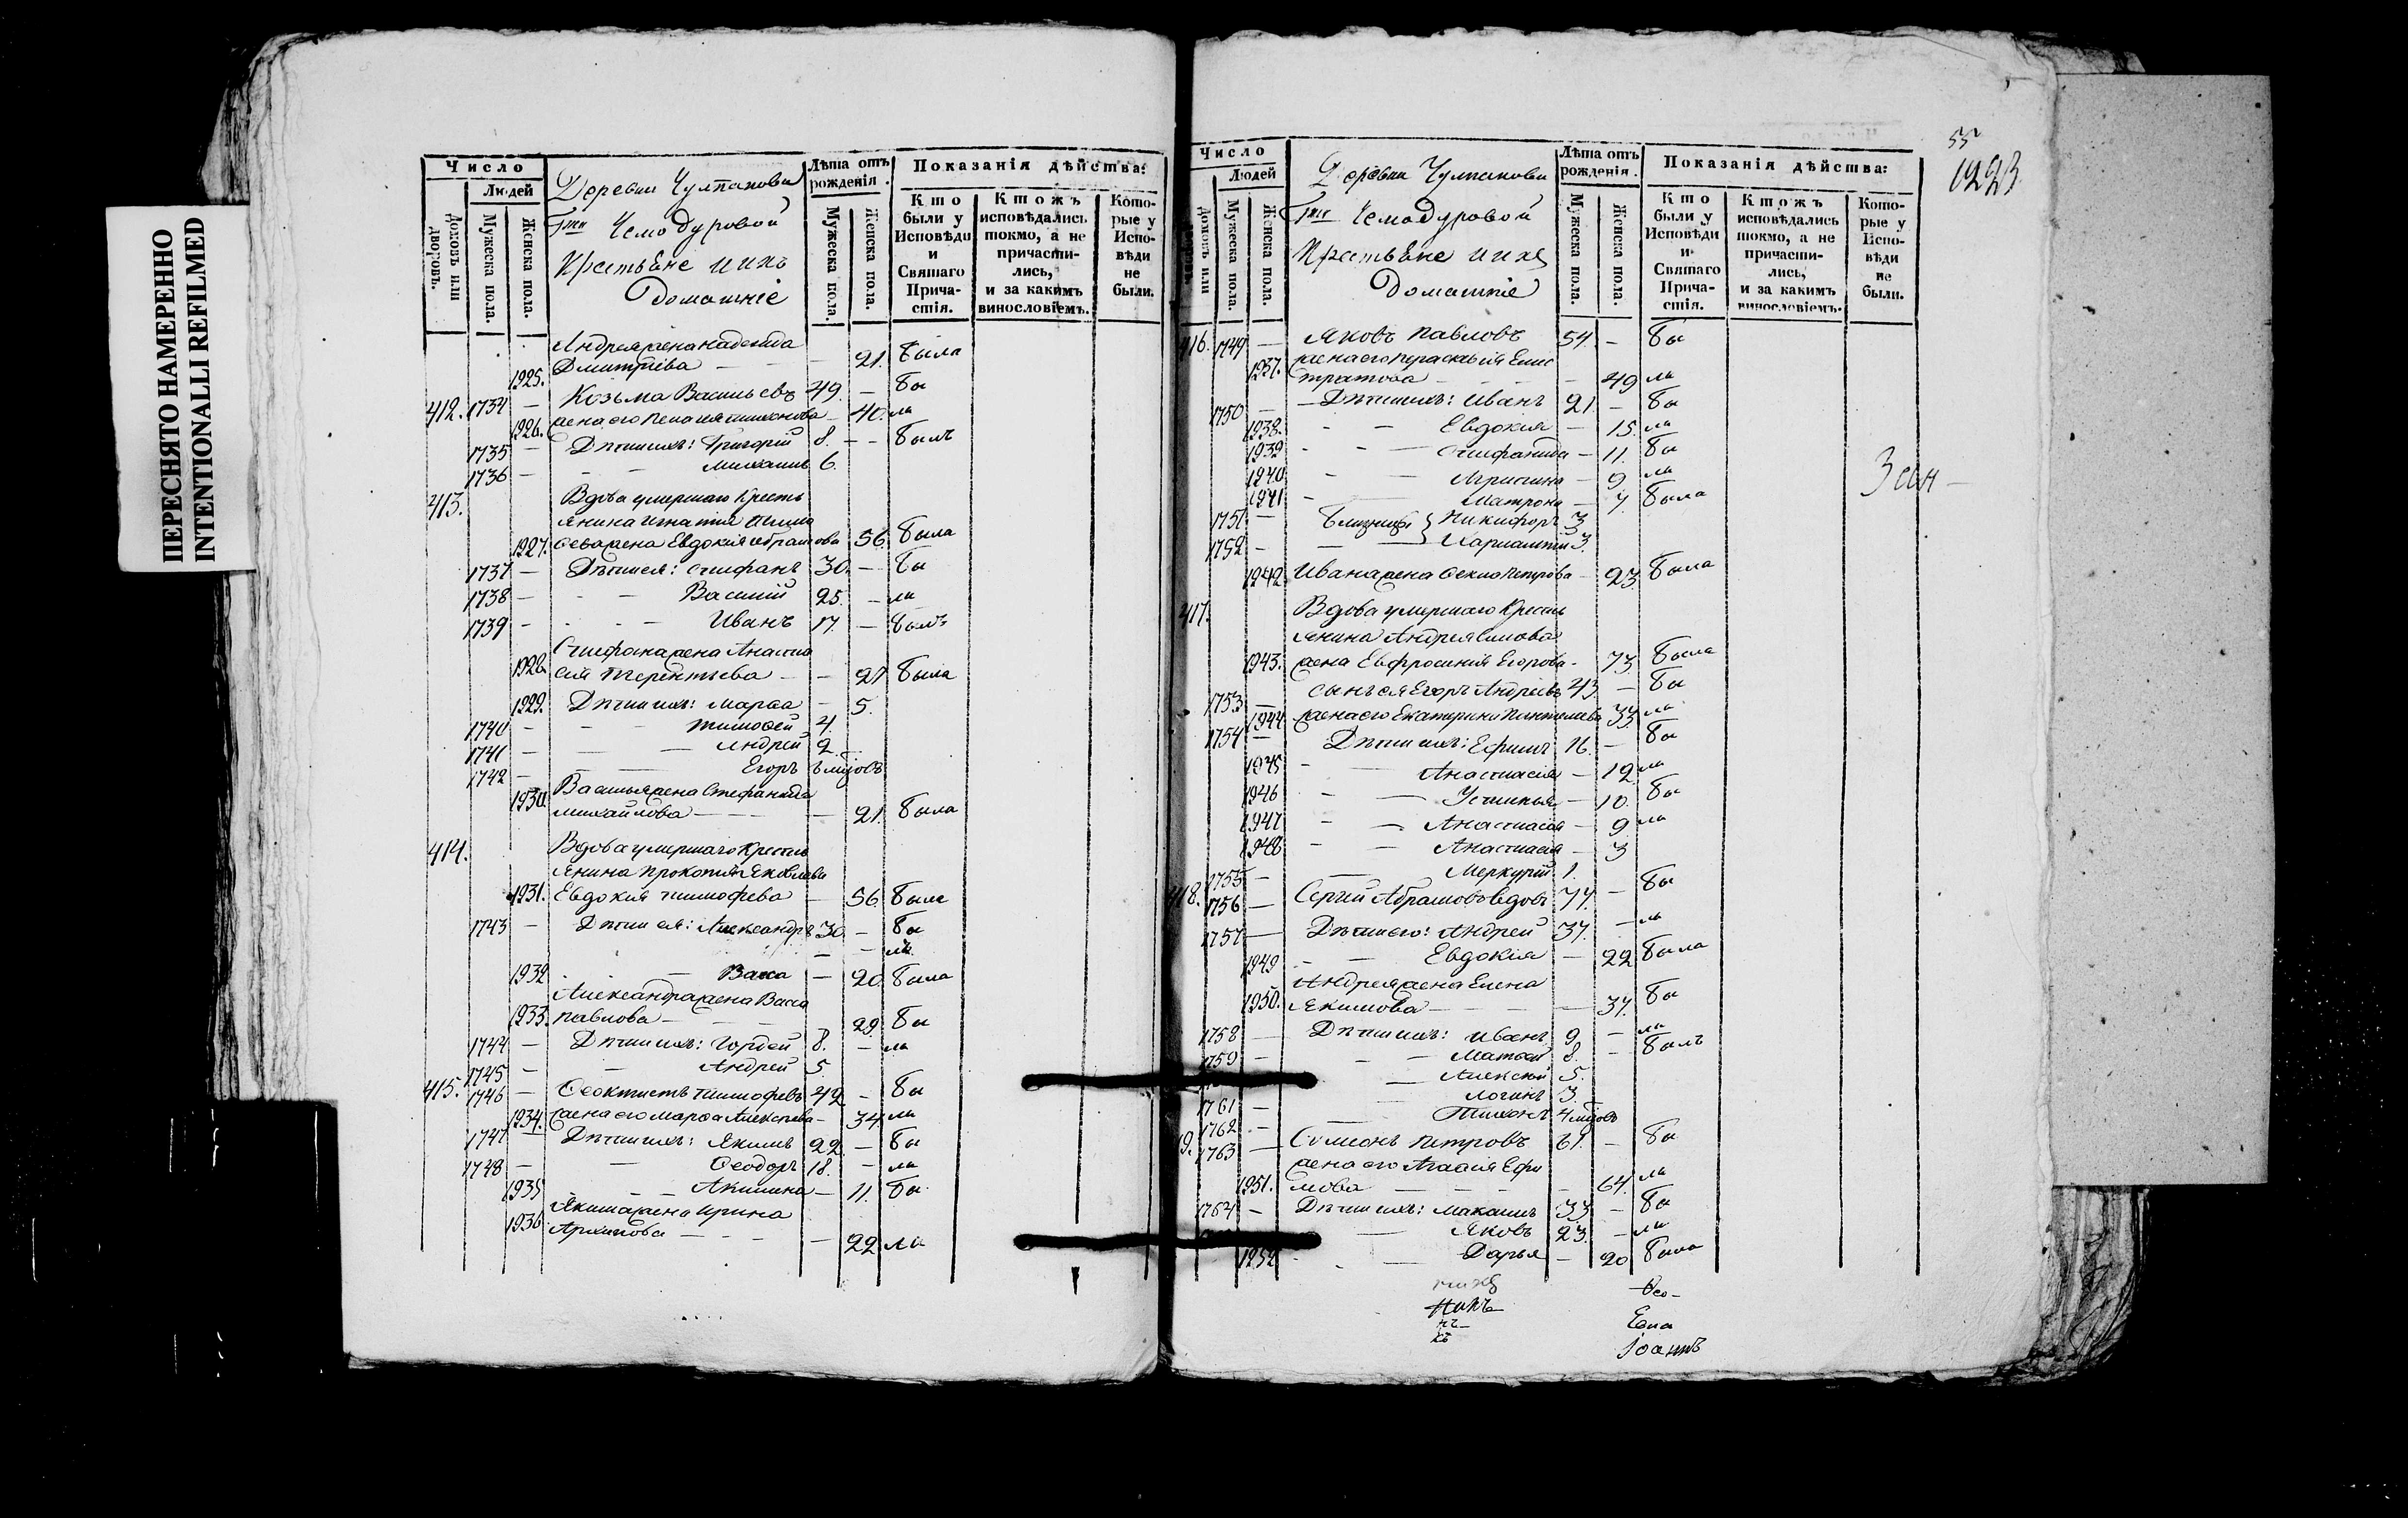 ПЕРЕСНЯТО НАМЕРЕННО
INTENTIONALLI REFILMED
Число
Людей
домовъ или дворовъ.
Мужеска пола.
Женска пола.
Деревни Чулпановы
Гжи Чемодуровой
Крестьѣне и ихъ
Домашніе
Лѣта отъ рожденія.
Мужеска пола.
Женска пола.
Показанія дѣйства:
Кто были у Исповѣди и Святаго Причастія.
Ктожъ исповѣдались токмо, а не причастились, и за какимъ винословіемъ.
Которые у Исповѣди не были.
Андрея жена Надежда
1925. Дмитріева — 21. была
412. 1734 — Козьма Васильевъ 49. — бы
1926. жена его — 40. ла
1735 — Дѣти ихъ: Григорій 8. — — былъ
1736 — Михаилъ 6.
413. Вдова умершаго Кресть
янина Игнатія
1927. жена Евдокия Абрамова 56 была
1737 — Дѣти ея: Стифанъ 30. — бы
1738 — Василий 25. — ла
1739 — Иванъ 17. — былъ
Стифана жена Анаста
1928. сия Терентьева — — 27 была
1929. Дѣти ихъ: Марѳа — 5.
1740 — Тимоѳей 4.
1741 — Андрей 2.
1742 — Егоръ
Василья жена Стефанида
1930. Михайлова — 21. была
414. Вдова умершаго Кресть
янина Прокопия Яковлева
1931. Евдокия Тимофева — 56 была
1743 — Дѣти ея: Александръ 30. — бы
— — ла
1932 — Васса — 20. была
Александра жена Васса
1933. Павлова — 29. бы
1744 — Дѣти ихъ: Гордей 8. — ла
1745 — Андрей 5.
415. 1746 — Ѳеоктистъ Тимофевъ 42 — бы
1934. жена его Марѳа Алексѣева — 34 ла
1747 — Дѣти ихъ: Якимъ 22 — бы
1748 — Ѳеодоръ 18. — ла
1935 — Акилина — 11. бы
Якима жена Ирина
1936 Архипова — 22 ла
55
1223
Число
Людей
домовъ или
Мужеска пола.
Женска пола.
Деревни Чулпановы
Гжи Чемодуровой
Крестьѣне и ихъ
Домашніе
Лѣта отъ рожденія.
Мужеска пола.
Женска пола.
Показанія дѣйства:
Кто были у Исповѣди и Святаго Причастія.
Ктожъ исповѣдались токмо, а не причастились, и за какимъ винословіемъ.
Которые у Исповѣди не были.
416. 1749 — Яковъ Павловъ 54. — бы
жена его Параскевія Елис
1937. тратова — 49 ла
1750 — Дѣти ихъ: Иванъ 21. — бы
1938. — Евдокия — 15. ла
1939 — Стифанида — 11. бы
1940 — — 9 ла
1941 — Матрона — 7 была
1751 — Близнецы Никифоръ 3
1752 — 3.
1942 Ивана жена Петрова — 23. была
417. Вдова умершаго Кресть
янина Андрея
1943. жена Евфросиния Егорова — 73. была
1753 — сынъ ея Егоръ Андреевъ 43. — бы
1944 жена его Екатерина Пантелеева 33. ла
1754 — Дѣти ихъ: Ефимъ 16. — бы
1945 — Анастасія — 12 ла
1946 — Устинья — 10. бы
1947 — Анастасія — 9 ла
1948 — Анастасия — 3
1755 — Меркурій 1.
418. 1756 — Сергий Абрамовъ вдовъ 77. — бы
1757 — Дѣти его: Андрей 37. — ла
1949 — Евдокія — 22 была
Андрея жена Елена
1950. Якимова — 37. бы
1758 — Дѣти ихъ: Иванъ 9. — ла
1759 — Матвей 8. — былъ
— Алексѣй 5.
1761 — Логинъ 3.
1762 — Тихонъ
1763 — Симеонъ Петровъ 61. — бы
жена его Агаѳія Ефи
1951. мова — 64. ла
1764 — Дѣти ихъ: 33 — бы
— Яковъ 23. — ла
1952 — Дарья — 20 была
Іоаннъ